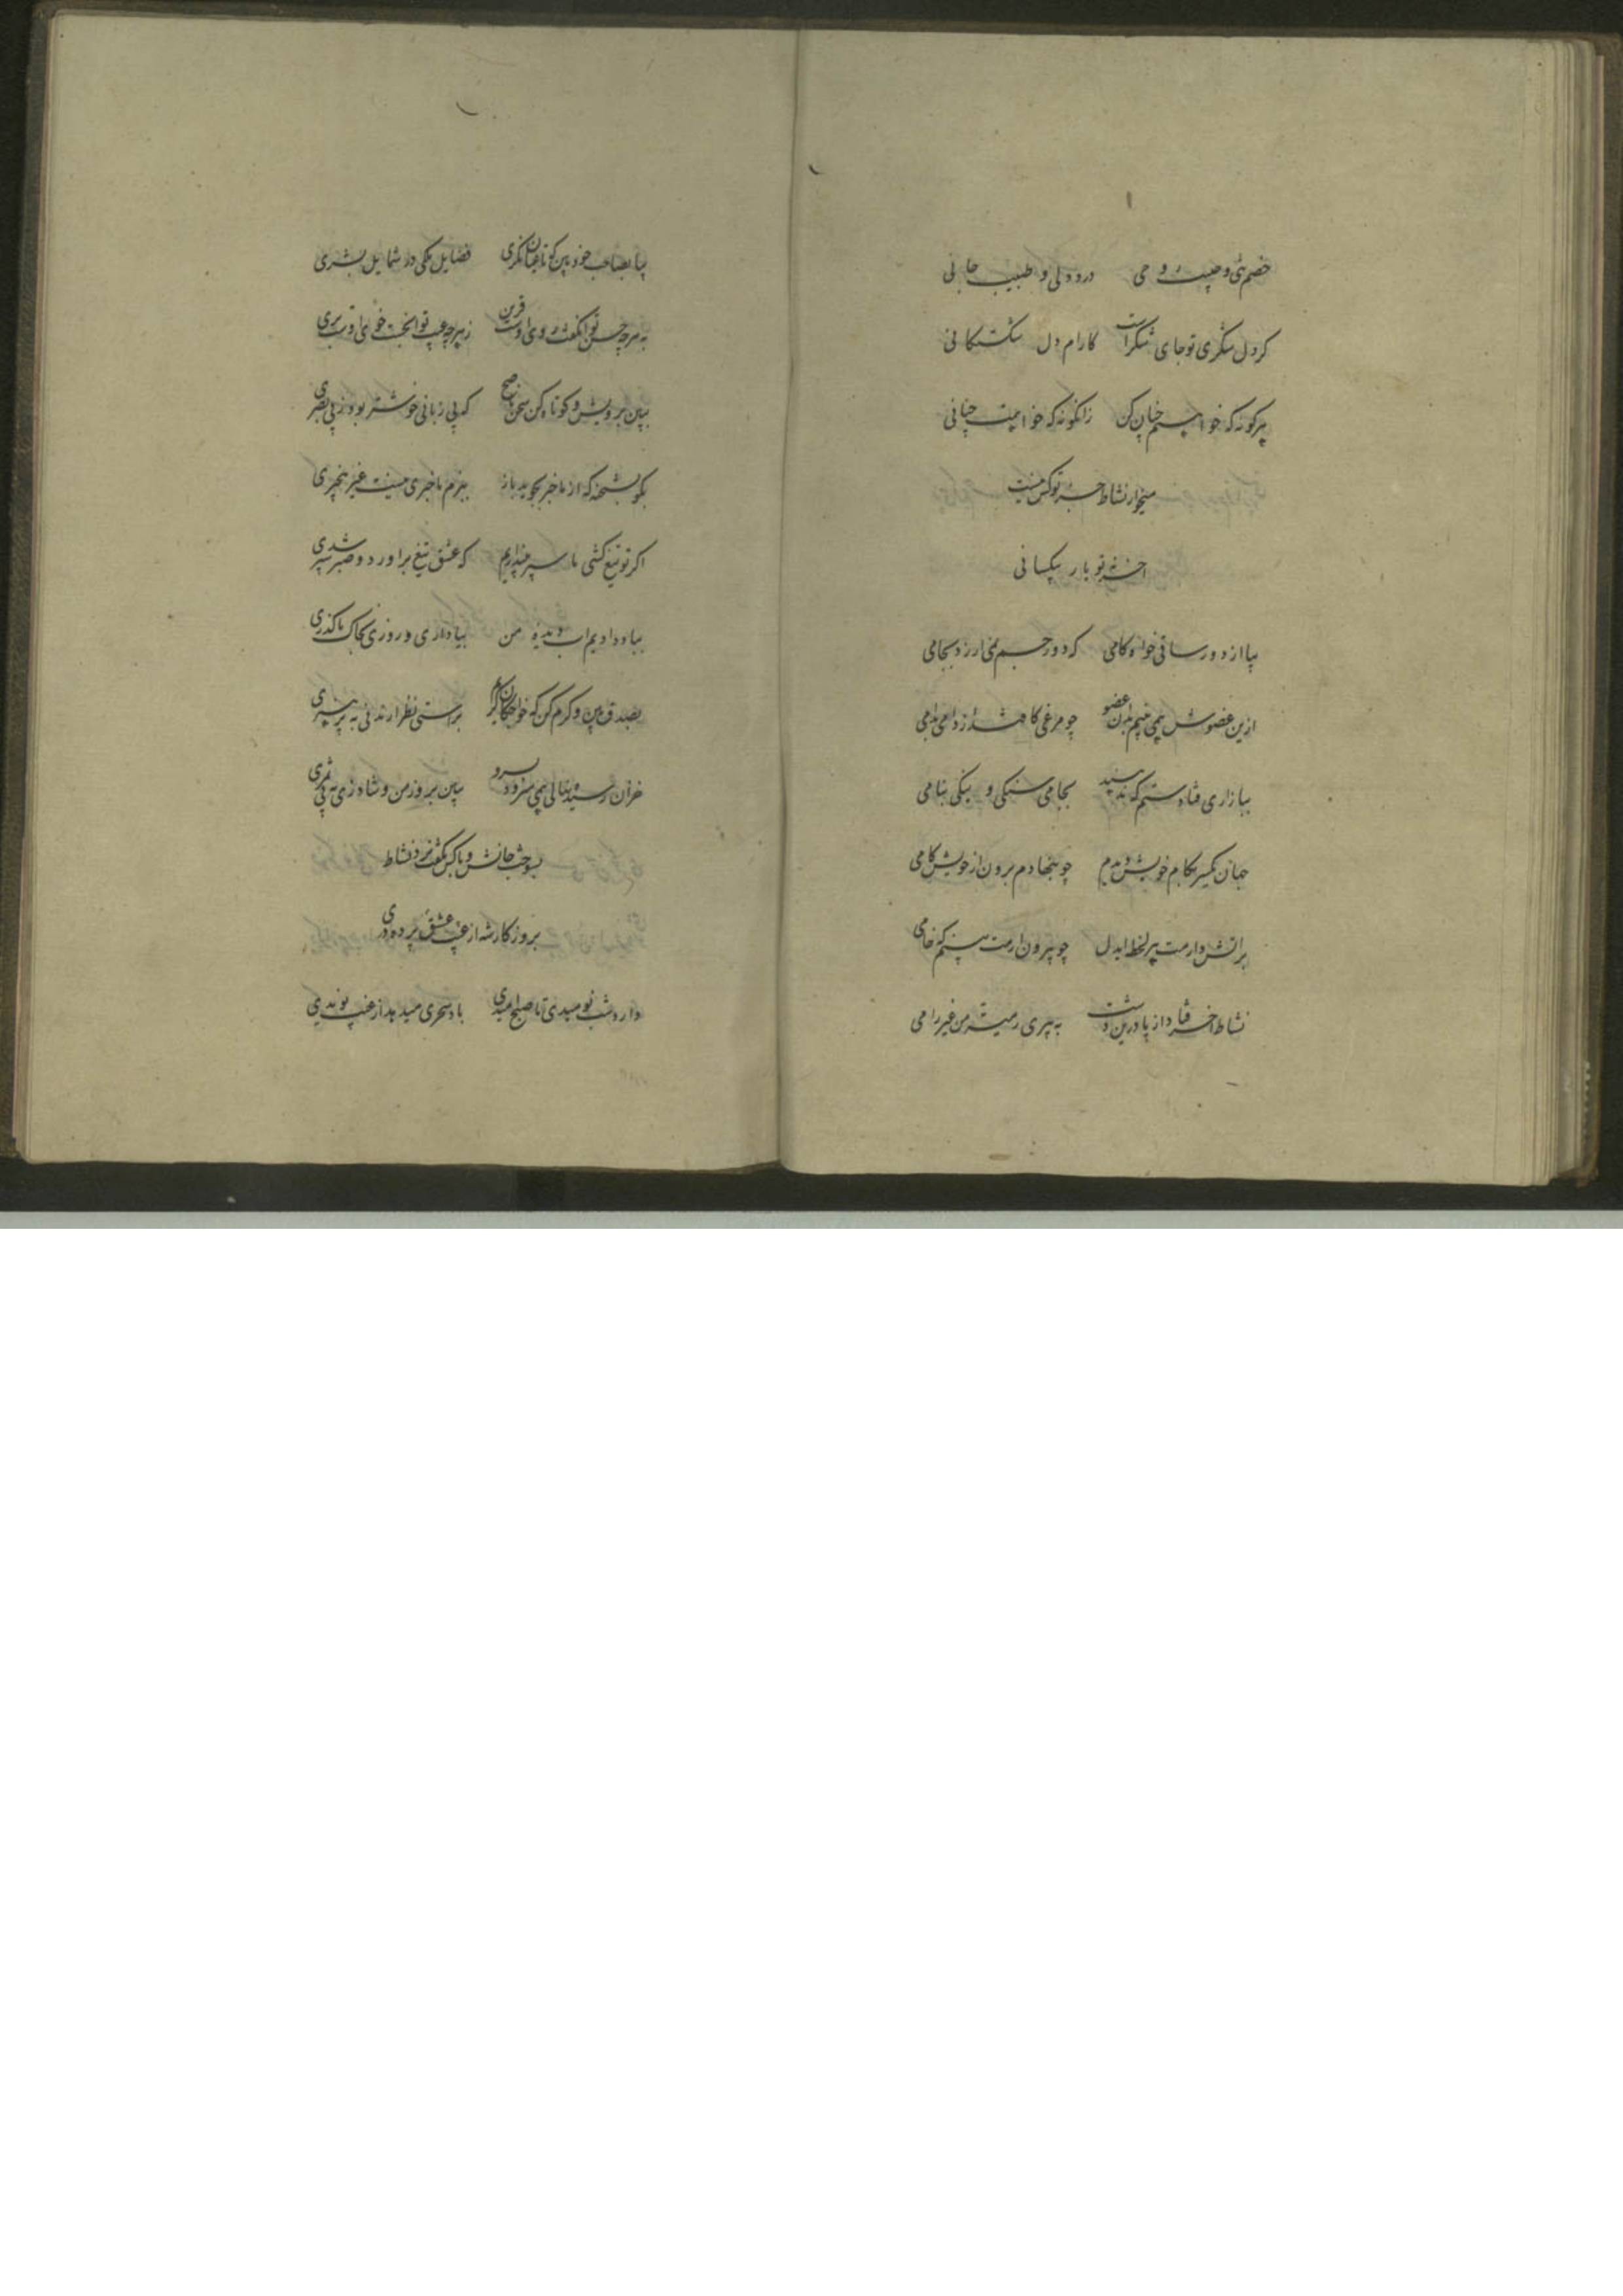 خصم تنی و حبیب روحی درد دلی و طبیب جانی
کر دل شکری تو جای شکر است کارام دل شکستکانی
هر کونه که خواهیم چنان کن زانکونه که خواهمت چنانی
میخوار نشاط جز تو کس نیست
اخر نه تو یار بیکسانی
بیا از دور ساقی خواه کامی که دور جم نمی ارزد بجامی
ازین عضوش همی بینم بدان عضو چو مرغی کاوفتد از دامی بدامی
ببازاری فتادستم که ندهند بجامی سنکی و ننکی بنامی
جهان یکسر بکام خویش دیدم چو بنهادم برون از خویش کامی
بر اتش دارمت هر لحظه ایدل چو بیرون ارمت بینم که خامی
نشاط اخر فتاد از پا درین دشت به پیری رمیته من غیر رامی
بیا بصاحب خود بین کرت بخان نکری فضایل ملکی در شمایل بشری
به هر چه حسن توان کفت روی اوست قرین ز هر چه عیب توان جست خوی اوست بری
ببین برویش و کوتاه کن سخن ناصح که بی زبانی خوشتر بود ز بی بصری
بکو بشحنه که از ما خبر نجوید باز ببزم ما خبری نیست غیر بیخبری
اکر تو تیغ کشی ما سپر نیندازیم که عشق تیغ براورد و صبر شد سپری
بباد دادیم اب دیده من بیاد اری و روزی بخاک ما کذری
بصدق بین و کرم کن که خواجکان کریم براستی نظر ارند نی به پر هنری
خزان رسید و نهالی همی سزود سرو ببین بروز من و شاد زی به بی ثمری
بسوخت جانش و با کس نکفت درد نشاط
بروز کار شد از عیب عشق پرده دری
دارد شب نومیدی تا صبح امیدی باد سحری میدهد از غیب نویدی